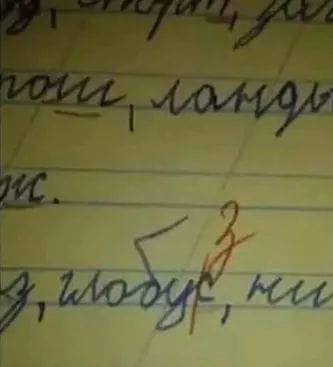 спорт, за
ош, ланды
ж.
з
з, глобус, ни